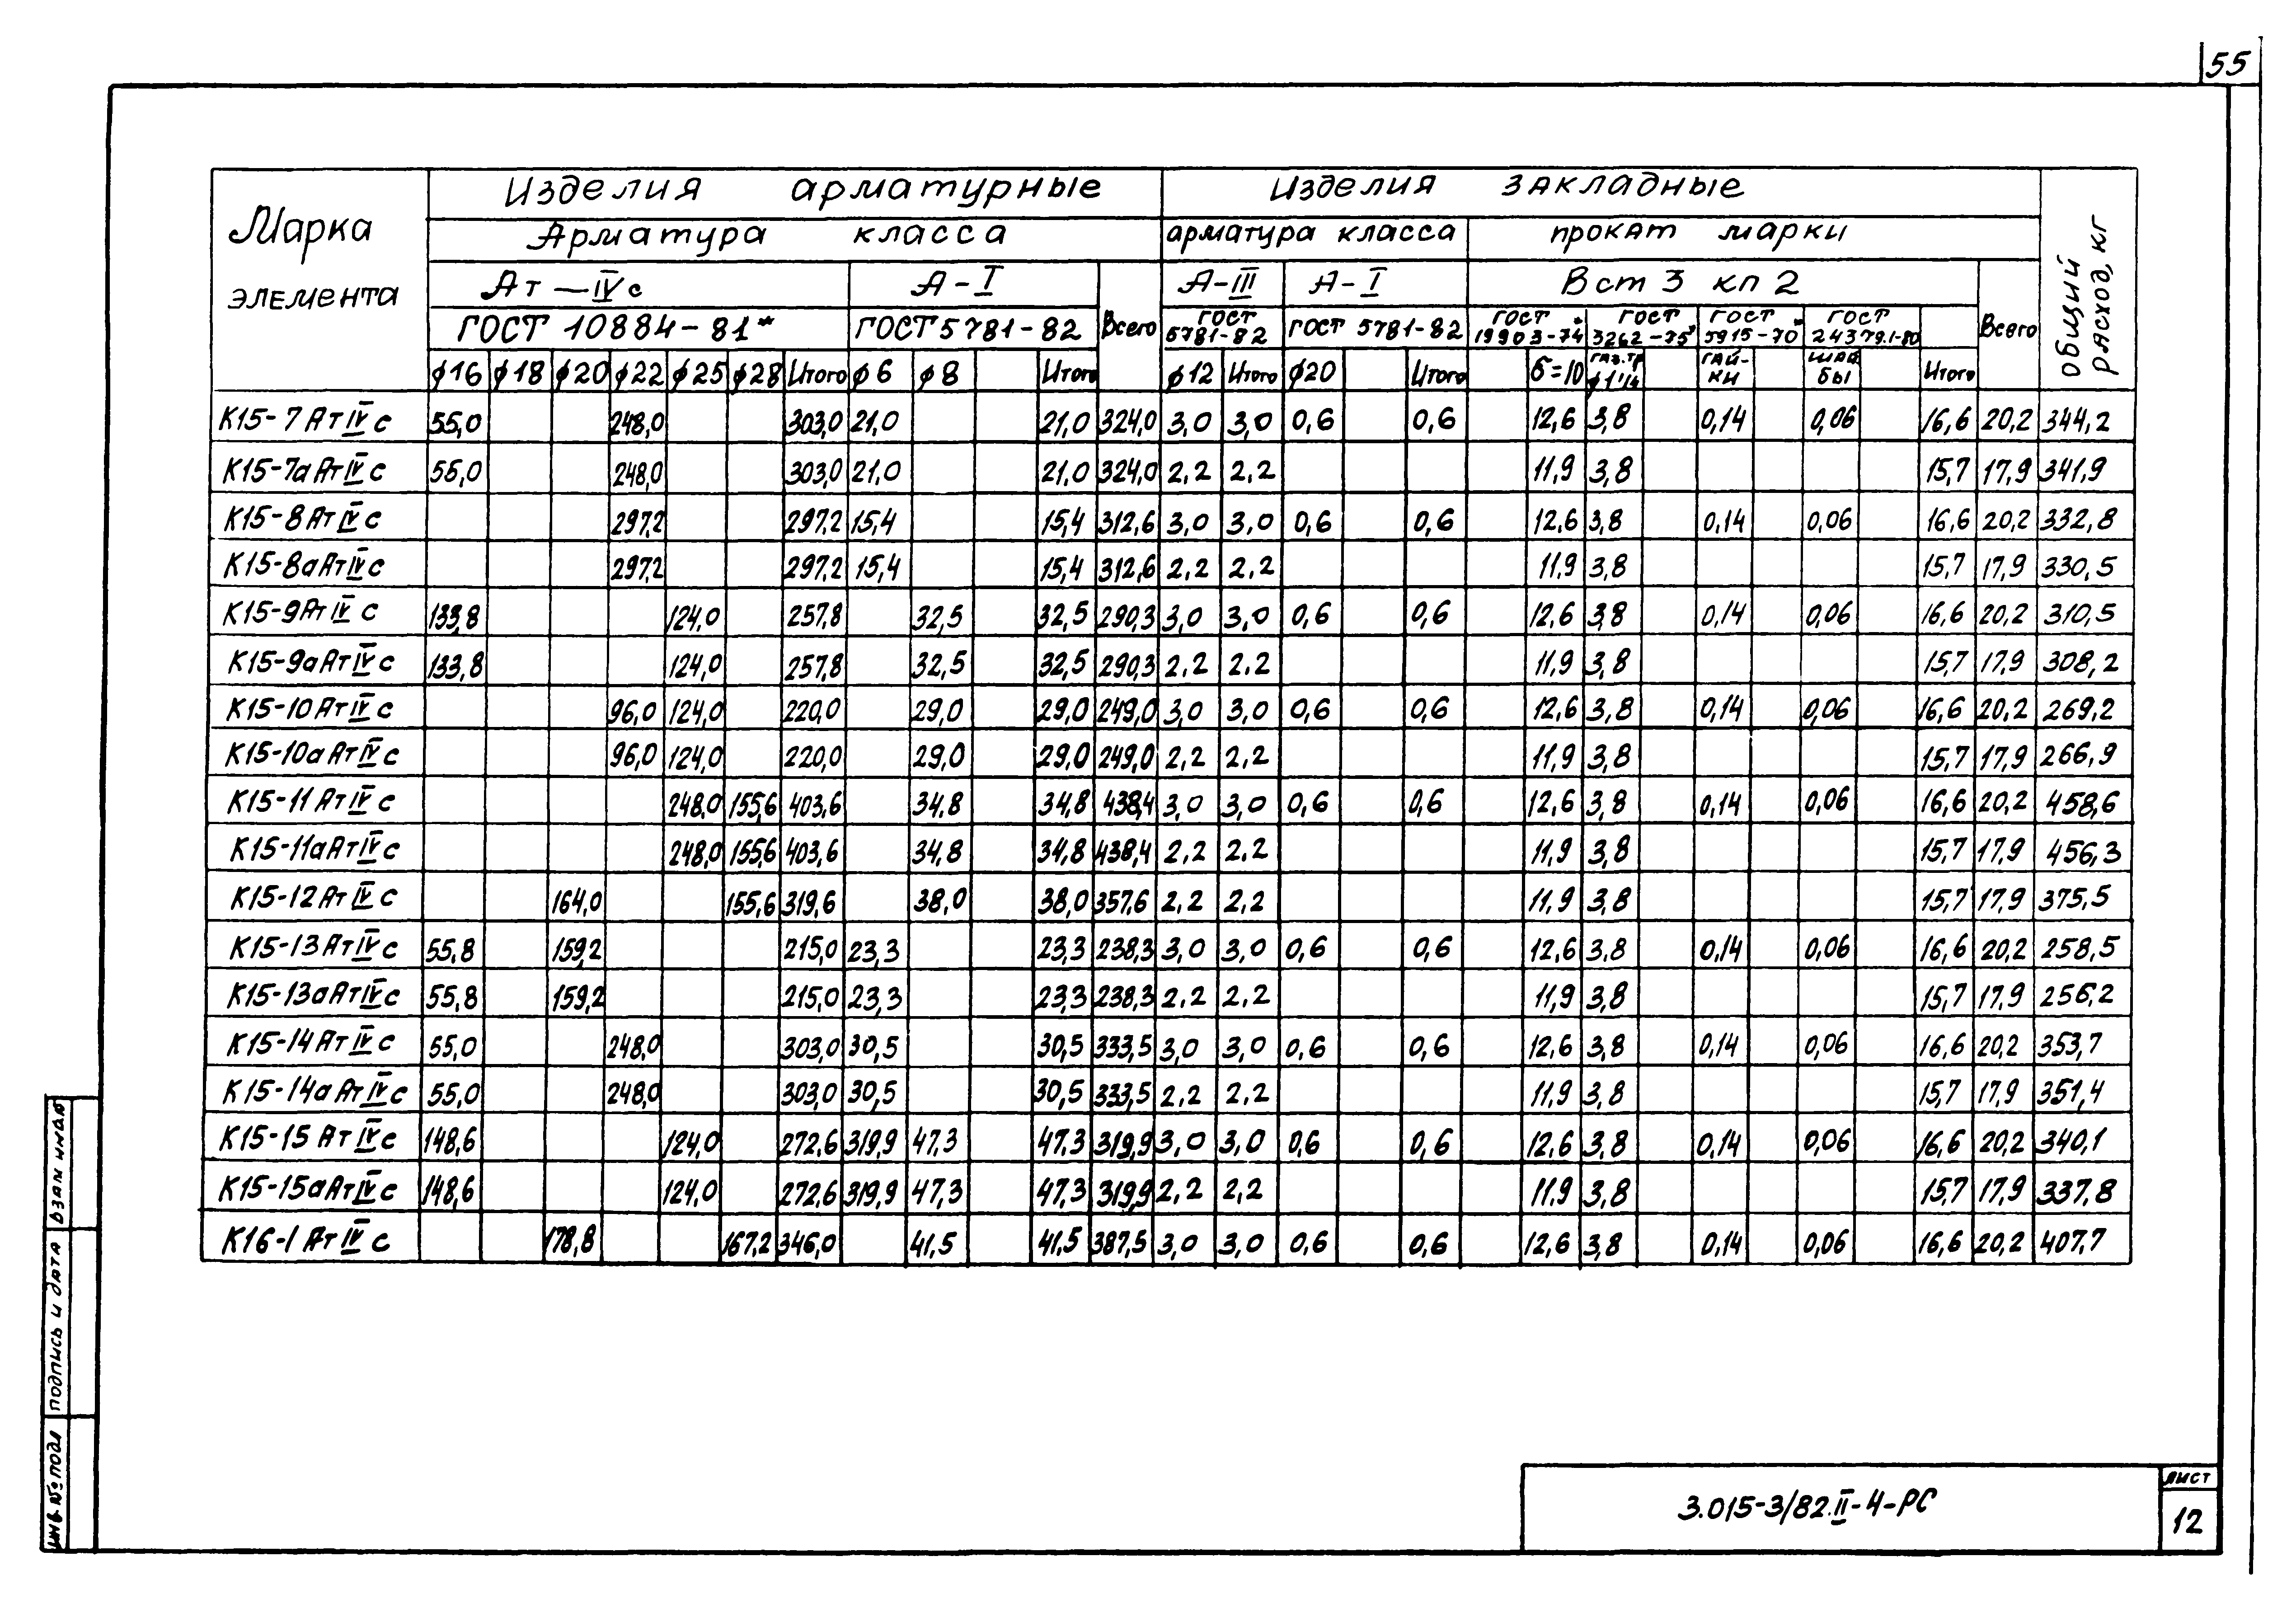 55
Марка элемента
Изделия арматурные
Изделия закладные
Общий расход, кг
Арматура класса
арматура класса
прокат марки
Ат-IVс
А-I
Всего
А-III
А-I
Вст 3 кп 2
Всего
ГОСТ 10884-81*
ГОСТ 5781-82
ГОСТ 5781-82
ГОСТ 5781-82
ГОСТ 19903-74*
ГОСТ 3262-75*
ГОСТ 5915-70*
ГОСТ 24379.1-80
ϕ16 ϕ18 ϕ20 ϕ22 ϕ25 ϕ28 Итого ϕ6 ϕ8 Итого ϕ12 Итого ϕ20 Итого б=10 газ.тр ϕ1"1/4 гайки шайбы Итого
К15-7АтIVс 55,0 248,0 303,0 21,0 21,0 324,0 3,0 3,0 0,6 0,6 12,6 3,8 0,14 0,06 16,6 20,2 344,2
К15-7аАтIVс 55,0 248,0 303,0 21,0 21,0 324,0 2,2 2,2 11,9 3,8 15,7 17,9 341,9
К15-8АтIVс 297,2 297,2 15,4 15,4 312,6 3,0 3,0 0,6 0,6 12,6 3,8 0,14 0,06 16,6 20,2 332,8
К15-8аАтIVс 297,2 297,2 15,4 15,4 312,6 2,2 2,2 11,9 3,8 15,7 17,9 330,5
К15-9АтIVс 133,8 124,0 257,8 32,5 32,5 290,3 3,0 3,0 0,6 0,6 12,6 3,8 0,14 0,06 16,6 20,2 310,5
К15-9аАтIVс 133,8 124,0 257,8 32,5 32,5 290,3 2,2 2,2 11,9 3,8 15,7 17,9 308,2
К15-10АтIVс 96,0 124,0 220,0 29,0 29,0 249,0 3,0 3,0 0,6 0,6 12,6 3,8 0,14 0,06 16,6 20,2 269,2
К15-10аАтIVс 96,0 124,0 220,0 29,0 29,0 249,0 2,2 2,2 11,9 3,8 15,7 17,9 266,9
К15-11АтIVс 248,0 155,6 403,6 34,8 34,8 438,4 3,0 3,0 0,6 0,6 12,6 3,8 0,14 0,06 16,6 20,2 458,6
К15-11аАтIVс 248,0 155,6 403,6 34,8 34,8 438,4 2,2 2,2 11,9 3,8 15,7 17,9 456,3
К15-12АтIVс 164,0 155,6 319,6 38,0 38,0 357,6 2,2 2,2 11,9 3,8 15,7 17,9 375,5
К15-13АтIVс 55,8 159,2 215,0 23,3 23,3 238,3 3,0 3,0 0,6 0,6 12,6 3,8 0,14 0,06 16,6 20,2 258,5
К15-13аАтIVс 55,8 159,2 215,0 23,3 23,3 238,3 2,2 2,2 11,9 3,8 15,7 17,9 256,2
К15-14АтIVс 55,0 248,0 303,0 30,5 30,5 333,5 3,0 3,0 0,6 0,6 12,6 3,8 0,14 0,06 16,6 20,2 353,7
К15-14аАтIVс 55,0 248,0 303,0 30,5 30,5 333,5 2,2 2,2 11,9 3,8 15,7 17,9 351,4
К15-15АтIVс 148,6 124,0 272,6 319,9 47,3 47,3 319,9 3,0 3,0 0,6 0,6 12,6 3,8 0,14 0,06 16,6 20,2 340,1
К15-15аАтIVс 148,6 124,0 272,6 319,9 47,3 47,3 319,9 2,2 2,2 11,9 3,8 15,7 17,9 337,8
К16-1АтIVс 178,8 167,2 346,0 41,5 41,5 387,5 3,0 3,0 0,6 0,6 12,6 3,8 0,14 0,06 16,6 20,2 407,7
ИНВ.№ подл подпись и дата Взам инв№
3.015-3/82.II-4-РС
Лист
12